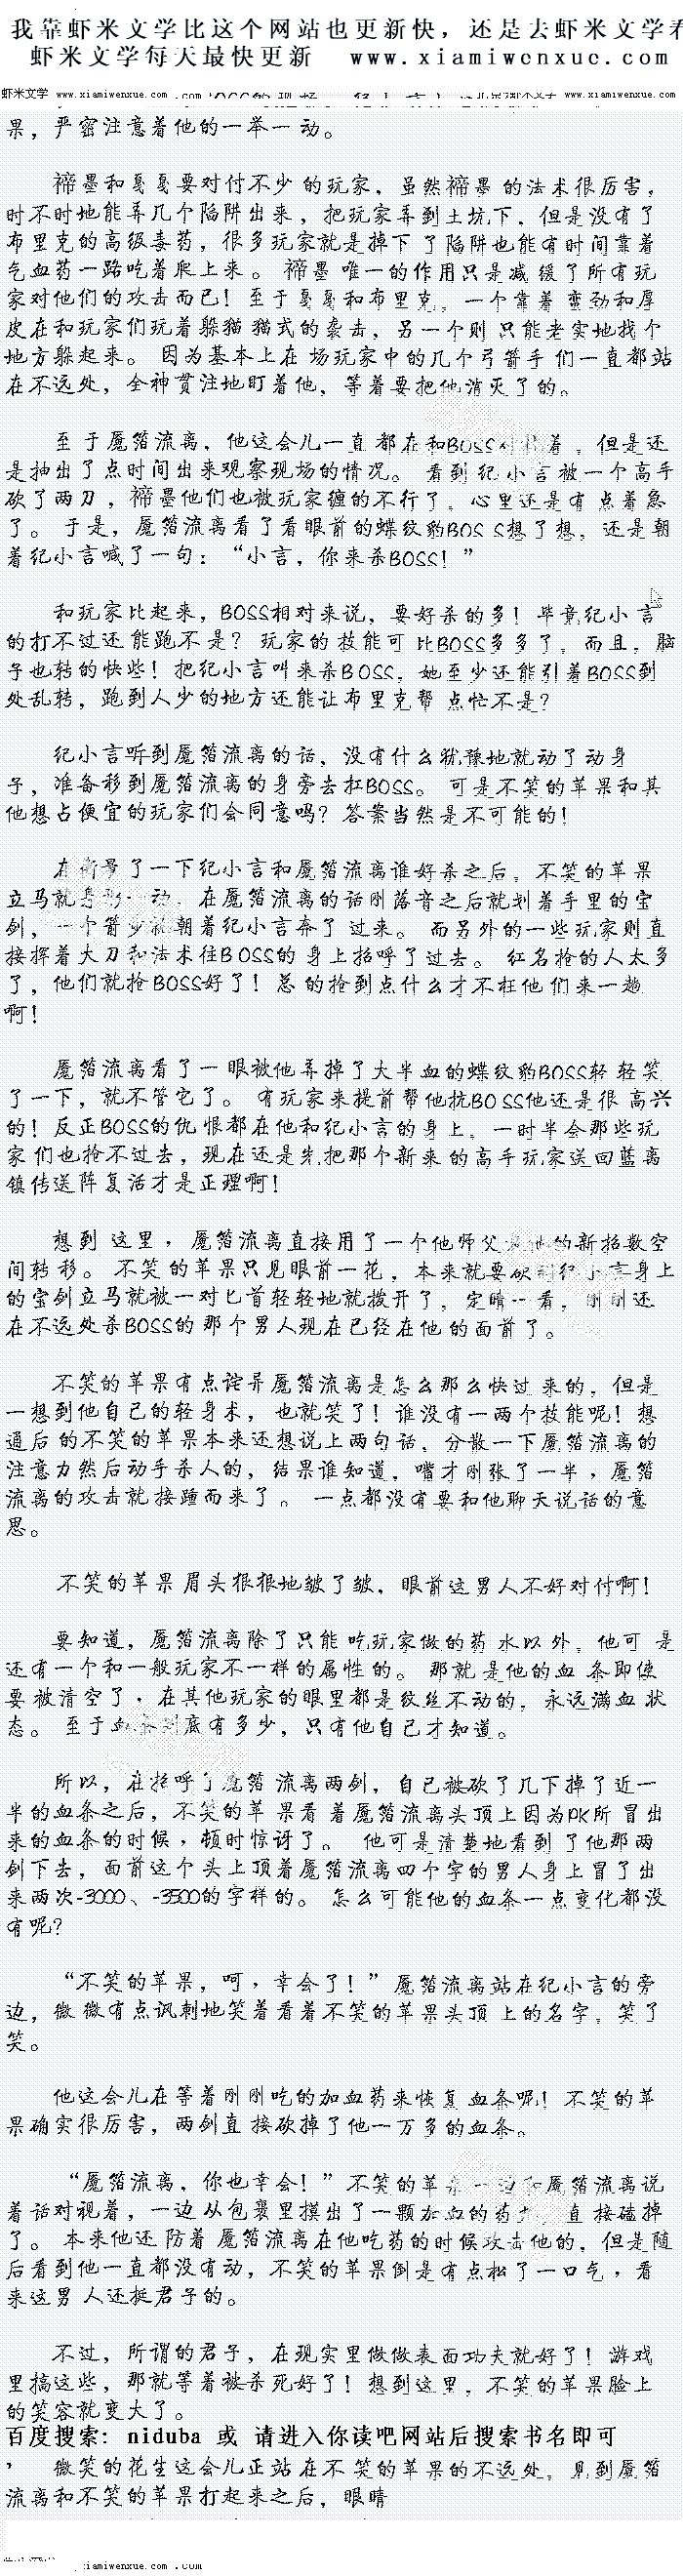 我靠虾米文学比这个网站也更新快，还是去虾米文学看
虾米文学每天最快更新 www.xiamiwenxue.com
虾米文学 www.xiamiwenxue.com .com www.xiamiwenxue.com
果，严密注意着他的一举一动。
禘墨和戛戛要对付不少的玩家，虽然禘墨的法术很厉害，
时不时地能弄几个陷阱出来，把玩家弄到土坑下，但是没有了
布里克的高级毒药，很多玩家就是掉下了陷阱也能有时间靠着
气血药一路吃着爬上来。禘墨唯一的作用只是减缓了所有玩
家对他们的攻击而已！至于戛戛和布里克，一个靠着蛮劲和厚
皮在和玩家们玩着躲猫猫式的袭击，另一个则只能老实地找个
地方躲起来。因为基本上在场玩家中的几个弓箭手们一直都站
在不远处，全神贯注地盯着他，等着要把他消灭了的。
至于魇箔流离，他这会儿一直都在和BOSS着，但是还
是抽出了点时间出来观察现场的情况。看到纪小言被一个高手
砍了两刀，禘墨他们也被玩家缠的不行了，心里还是有点着急
了。于是，魇箔流离看了看眼前的蝶纹豹BOSS想了想，还是朝
着纪小言喊了一句：“小言，你来杀BOSS！”
和玩家比起来，BOSS相对来说，要好杀的多！毕竟纪小言
的打不过还能跑不是？玩家的技能可比BOSS多多了，而且，脑
子也转的快些！把纪小言叫来杀BOSS，她至少还能引着BOSS到
处乱转，跑到人少的地方还能让布里克帮点忙不是？
纪小言听到魇箔流离的话，没有什么犹豫地就动了动身
子，准备移到魇箔流离的身旁去扛BOSS。可是不笑的苹果和其
他想占便宜的玩家们会同意吗？答案当然是不可能的！
在衡量了一下纪小言和魇箔流离谁好杀之后，不笑的苹果
立马就身形一动，在魇箔流离的话刚落音之后就划着手里的宝
剑，一个箭步就朝着纪小言奔了过来。而另外的一些玩家则直
接挥着大刀和法术往BOSS的身上招呼了过去。红名抢的人太多
了，他们就抢BOSS好了！总的抢到点什么才不枉他们来一趟
啊！
魇箔流离看了一眼被他弄掉了大半血的蝶纹豹BOSS轻轻笑
了一下，就不管它了。有玩家来提前帮他抗BOSS他还是很高兴
的！反正BOSS的仇恨都在他和纪小言的身上，一时半会那些玩
家们也抢不过去，现在还是先把那个新来的高手玩家送回蓝离
镇传送阵复活才是正理啊！
想到这里，魇箔流离直接用了一个他师父教他的新招数空
间转移。不笑的苹果只见眼前一花，本来就要砍到纪小言身上
的宝剑立马就被一对匕首轻轻地就拨开了，定睛一看，刚刚还
在不远处杀BOSS的那个男人现在已经在他的面前了。
不笑的苹果有点诧异魇箔流离是怎么那么快过来的，但是
一想到他自己的轻身术，也就笑了！谁没有一两个技能呢！想
通后的不笑的苹果本来还想说上两句话，分散一下魇箔流离的
注意力然后动手杀人的，结果谁知道，嘴才刚张了一半，魇箔
流离的攻击就接踵而来了。一点都没有要和他聊天说话的意
思。
不笑的苹果眉头狠狠地皱了皱，眼前这男人不好对付啊！
要知道，魇箔流离除了只能吃玩家做的药水以外，他可是
还有一个和一般玩家不一样的属性的。那就是他的血条即使
要被清空了，在其他玩家的眼里都是纹丝不动的，永远满血状
态。至于血条到底有多少，只有他自己才知道。
所以，在招呼了魇箔流离两剑，自己被砍了几下掉了近一
半的血条之后，不笑的苹果看着魇箔流离头顶上因为PK所冒出
来的血条的时候，顿时惊讶了。他可是清楚地看到了他那两
剑下去，面前这个头上顶着魇箔流离四个字的男人身上冒了出
来两次-3000、-3500的字样的。怎么可能他的血条一点变化都没
有呢？
“不笑的苹果，呵，幸会了！”魇箔流离站在纪小言的旁
边，微微有点讽刺地笑着看着不笑的苹果头顶上的名字，笑了
笑。
他这会儿在等着刚刚吃的加血药来恢复血条呢！不笑的苹
果确实很厉害，两剑直接砍掉了他一万多的血条。
“魇箔流离，你也幸会！”不笑的苹果一边和魇箔流离说
着话对视着，一边从包裹里摸出了一颗加血的药丸，直接磕掉
了。本来他还防着魇箔流离在他吃药的时候攻击他的，但是随
后看到他一直都没有动，不笑的苹果倒是有点松了一口气，看
来这男人还挺君子的。
不过，所谓的君子，在现实里做做表面功夫就好了！游戏
里搞这些，那就等着被杀死好了！想到这里，不笑的苹果脸上
的笑容就变大了。
百度搜索: niduba 或 请进入你读吧网站后搜索书名即可
， 微笑的花生这会儿正站在不笑的苹果的不远处，见到魇箔
流离和不笑的苹果打起来之后，眼睛
xiamiwenxue.com .com